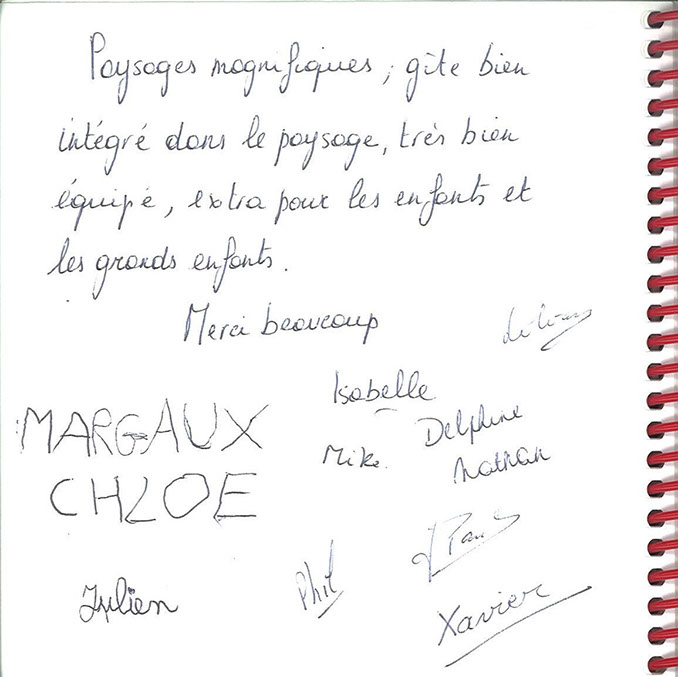 Paysages magnifiques, gîte bien
intégré dans le paysage, très bien
équipé, extra pour les enfants et
les grands enfants.
Merci beaucoup
Isabelle
MARGAUX
Delphine
Mike
Nathan
CHLOE
Phil
Julien
Xavier